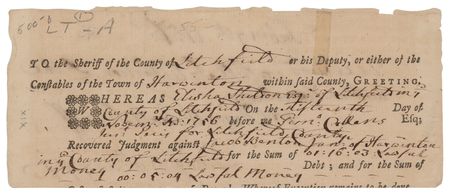 500-
LT-A
TO the Sheriff of the County of Litchfield or his Deputy, or either of the
Constables of the Town of Harwinton within said County, GREETING.
WHEREAS Elisha of Litchfield in ye
County of Litchfield On the fifteenth Day of
1756 before me Collens Esq;
for Litchfield County
Recovered Judgment against Jacob Benton Junr of Harwinton
in ye County of Litchfield for the Sum of 01:16:03 Lawful
Money Debt; and for the Sum of
00:05:04 Lawful Money
XIX